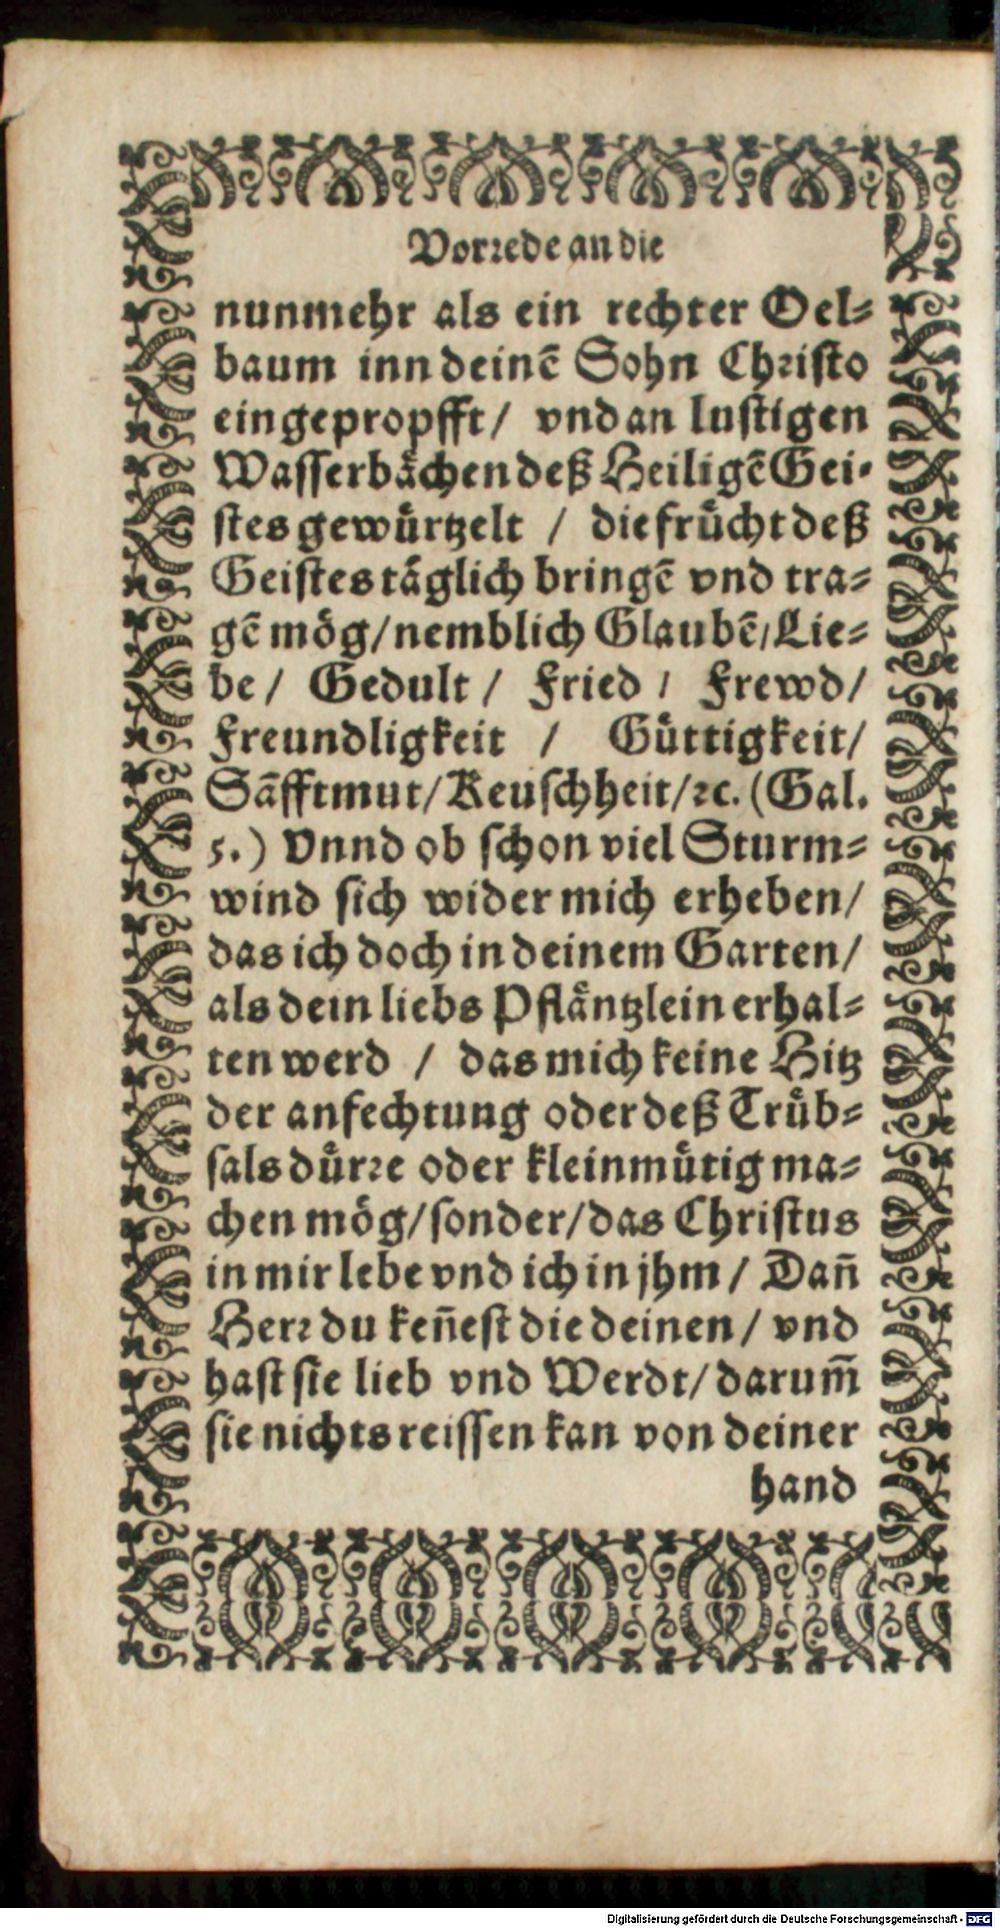 Vorꝛede an die
nunmehr als ein rechter Oel⸗
baum inn deinē Sohn Chꝛiſto
eingepropfft/ vnd an luſtigen
Waſſerbaͤchen deß Heiligē Gei⸗
ſtes gewuͤrtzelt / die fruͤcht deß
Geiſtes taͤglich bringē vnd tra⸗
gē moͤg/nemblich Glaubē/Lie⸗
be/ Gedult/ Fried/ Frewd/
Freundligkeit / Guͤttigkeit/
Sāfftmut/Keuſchheit/ꝛc. (Gal.
5.) Vnnd ob ſchon viel Sturm⸗
wind ſich wider mich erheben/
das ich doch in deinem Garten/
als dein liebs Pflaͤntzlein erhal⸗
ten werd / das mich keine Hitz
der anfechtung oder deß Truͤb⸗
ſals duͤrꝛe oder kleinmuͤtig ma⸗
chen moͤg/ſonder/das Chriſtus
in mir lebe vnd ich in jhm/ Dañ
Herꝛ du keñeſt die deinen/ vnd
haſt ſie lieb vnd Werdt/ darum̄
ſie nichts reiſſen kan von deiner
hand
Digitalisierung gefördert durch die Deutsche Forschungsgemeinschaft - DFG